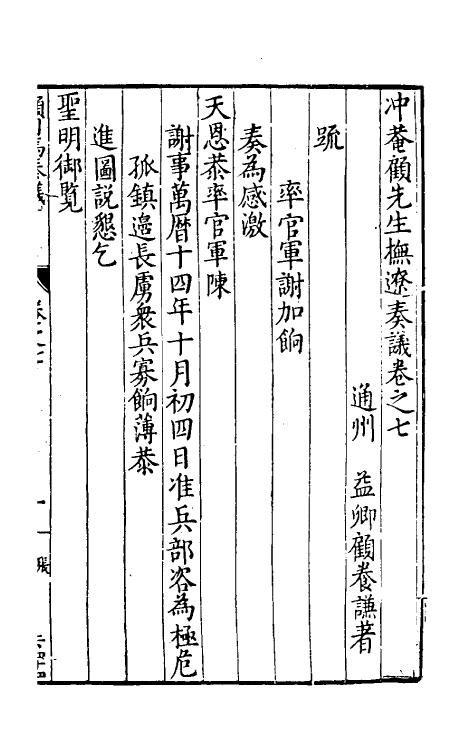 冲菴顧先生撫遼奏議卷之七
通州　益卿顧養謙著
疏
率官軍謝加餉
奏為感激
天恩恭率官軍陳
謝事萬曆十四年十月初四日准兵部咨為極危
孤鎮邊長虜衆兵寡餉薄恭
進圖説懇乞
聖明御覽